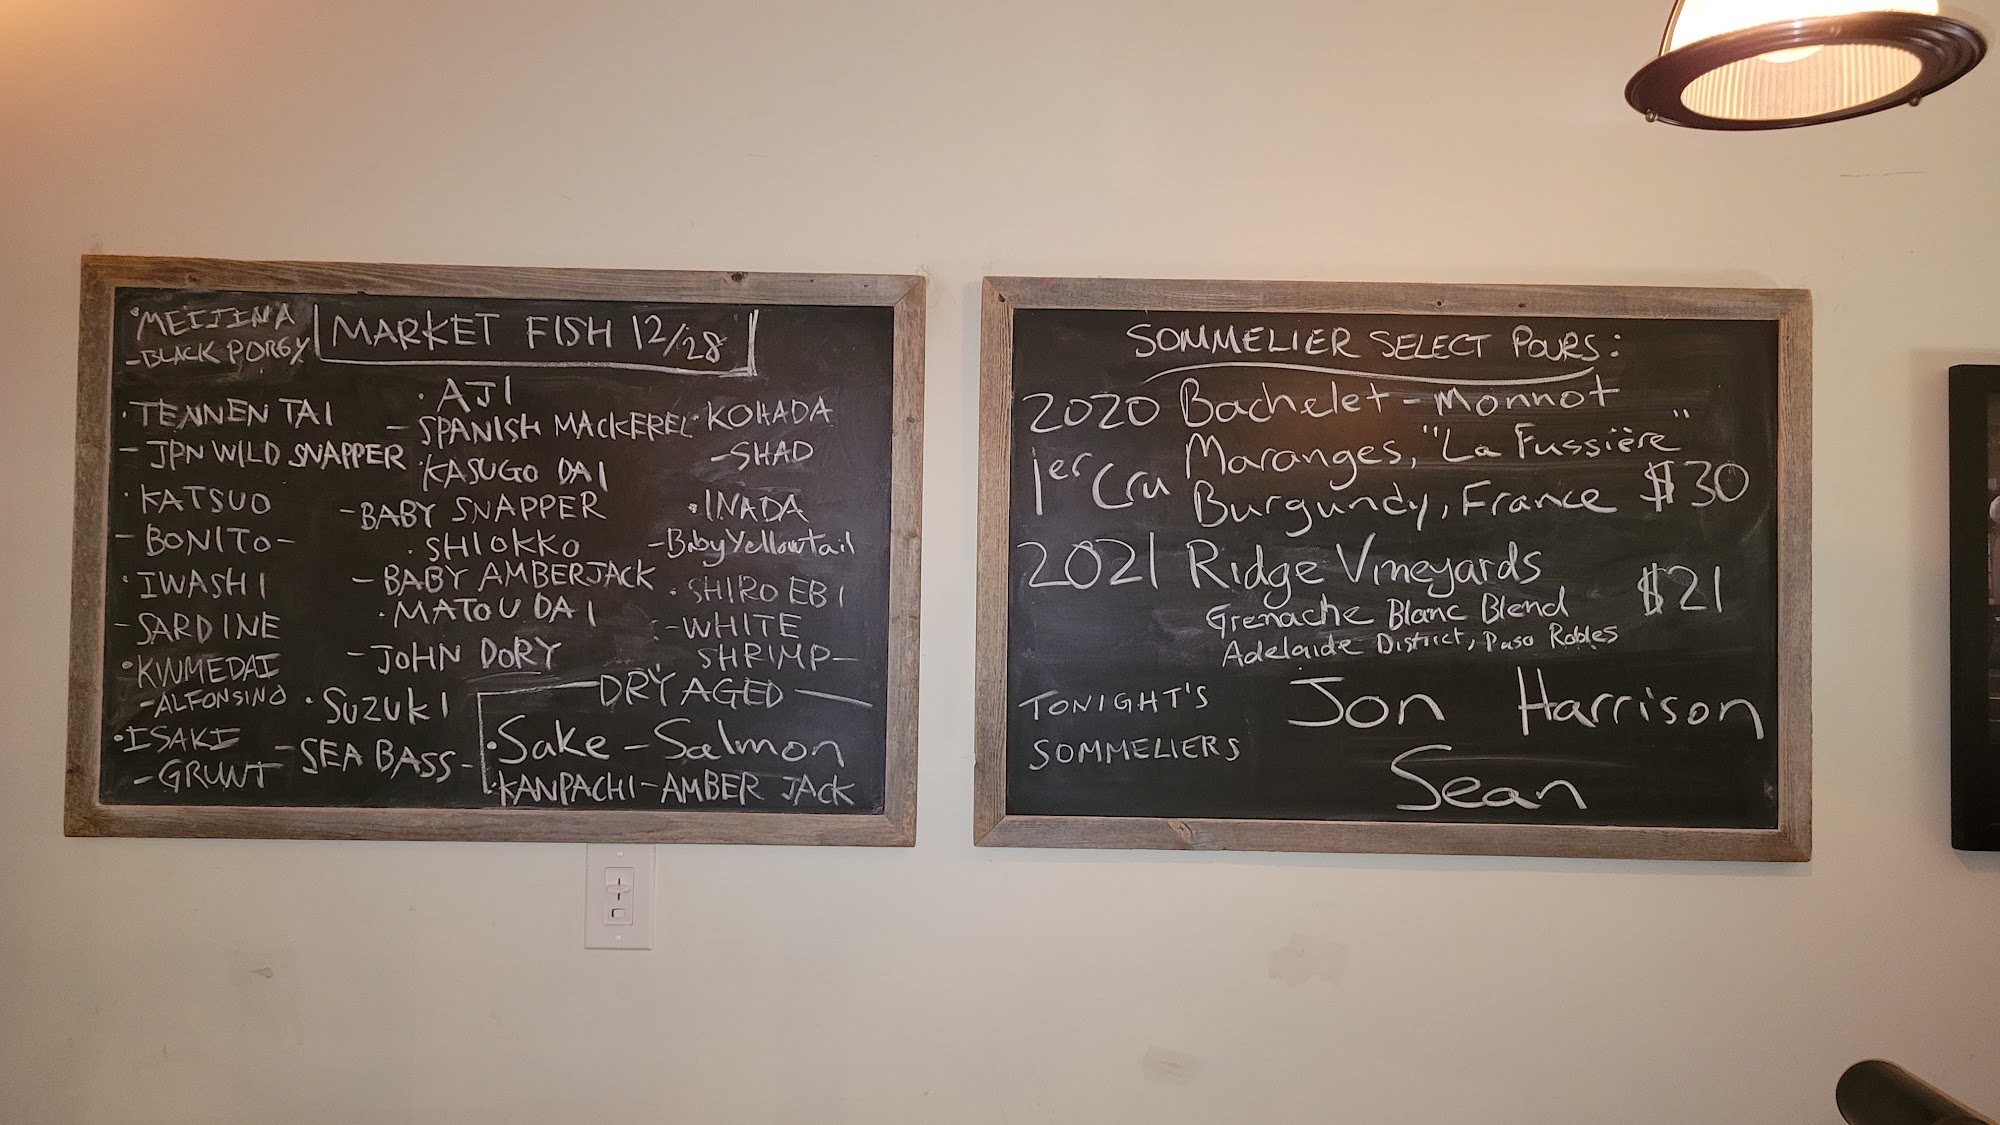 MARKET FISH 12/28
•MEIJINA
-BLACK PORGY
•TENNEN TAI
-JPN WILD SNAPPER
•KATSUO
-BONITO-
•IWASHI
-SARDINE
•KINMEDAI
-ALFONSINO
•ISAKI
-GRUNT
•AJI
-SPANISH MACKEREL
•KASUGO DAI
-BABY SNAPPER
•SHIOKKO
-BABY AMBERJACK
•MATOU DAI
-JOHN DORY
•SUZUKI
-SEA BASS-
•KOHADA
-SHAD
•INADA
-Baby Yellowtail
•SHIRO EBI
-WHITE
SHRIMP-
DRY AGED
•Sake - Salmon
•KANPACHI-AMBER JACK
SOMMELIER SELECT POURS:
2020 Bachelet-Monnot
1er Cru Maranges, "La Fussière"
Burgundy, France $30
2021 Ridge Vineyards
$21
Grenache Blanc Blend
Adelaide District, Paso Robles
TONIGHT'S
SOMMELIERS
Jon Harrison
Sean